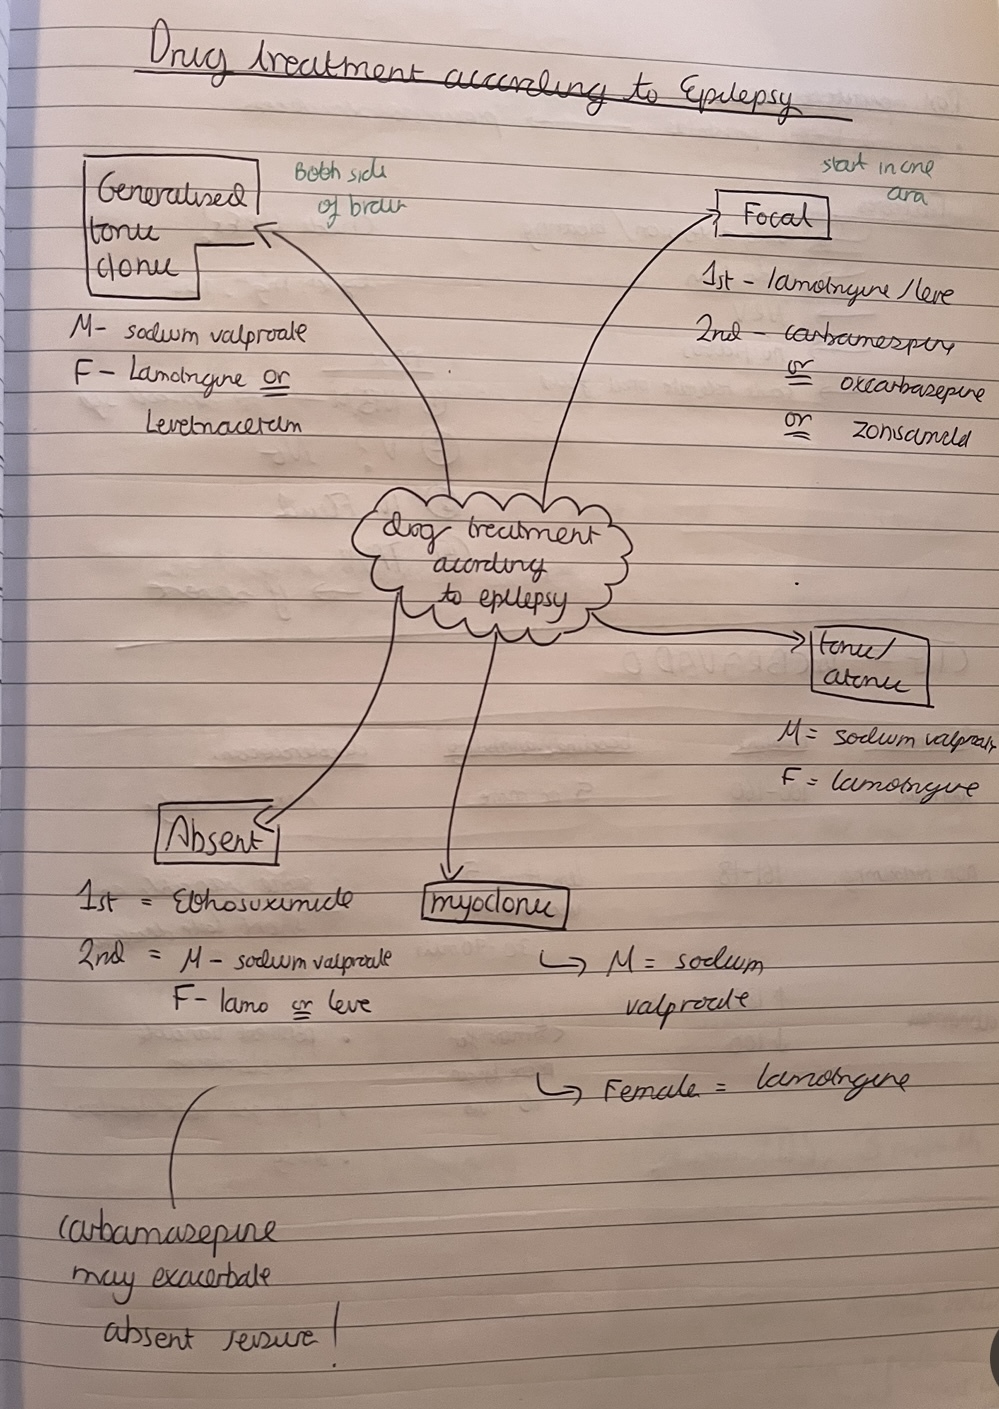 Drug treatment according to Epilepsy
Generalised
tonic
clonic
Both side
of brain
M- sodium valproate
F - Lamotrigine or
Levetiracetam
start in one
area
Focal
1st - lamotrigine / leve
2nd - carbamezpine
or oxcarbazepine
or zonisamid
drug treatment
acording
to epilepsy
tonic/
atonic
M = sodium valproate
F = lamotrigine
Absent
1st = Ethosuximide
2nd = M - sodium valproate
F - lamo or leve
myoclonic
↳ M = sodium
valproate
↳ Female = lamotrigine
carbamazepine
may exacerbate
absent seizure!